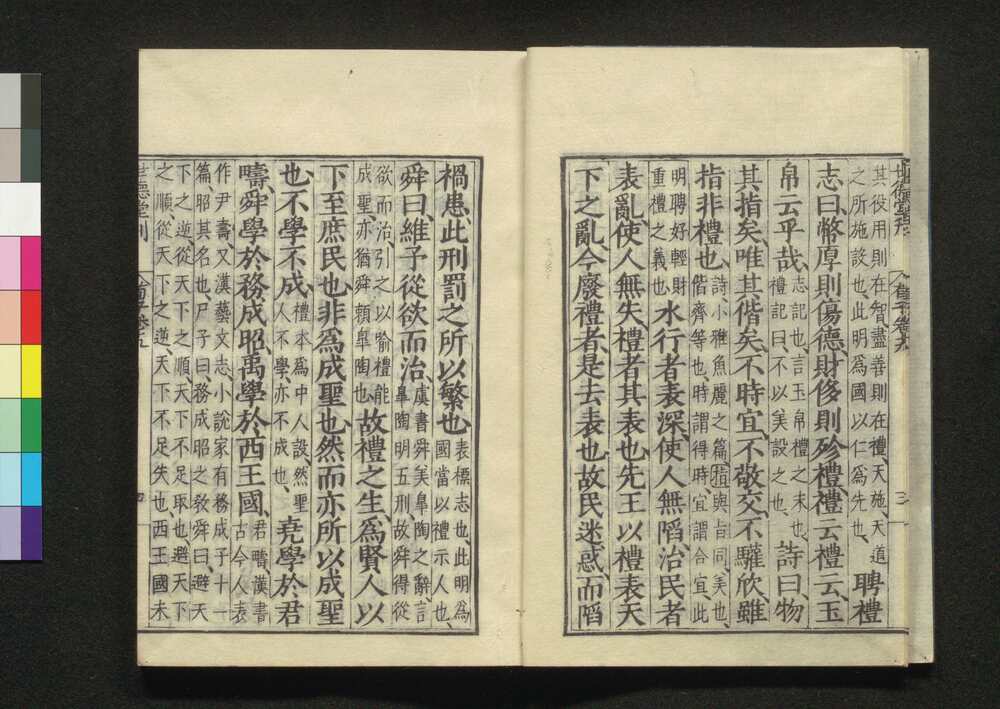 其役用則在智盡善則在禮天施天道
之所施設也此明爲國以仁爲先也
聘禮
志曰幣厚則傷德財侈則殄禮禮云禮云玉
帛云乎哉
志記也言玉帛禮之末也
禮記曰不以美設之也
詩曰物
其指矣唯其偕矣不時宜不敬交不驩欣雖
指非禮也
詩小雅魚麗之篇指與旨同美也
偕齊等也時謂得時宜謂合宜此
明聘好輕財
重禮之義也
水行者表深使人無陷治民者
表亂使人無失禮者其表也先王以禮表天
下之亂今廢禮者是去表也故民迷惑而陷
禍患此刑罰之所以繁也
表標志也此明爲
國當以禮示人也
舜曰維予從欲而治
虞書舜美皐陶之辭言
皐陶明五刑故舜得從
欲而治引之以喻禮能
成聖亦猶舜賴皐陶也
故禮之生爲賢人以
下至庶民也非爲成聖也然而亦所以成聖
也不學不成
禮本爲中人設然聖
人不學亦不成也
堯學於君
疇舜學於務成昭禹學於西王國
君疇漢書
古今人表
作尹壽又漢藝文志小說家有務成子十一
篇昭其名也尸子曰務成昭之敎舜曰避天
下之逆從天下之順天下不足取也避天下
之順從天下之逆天下不足失也西王國未